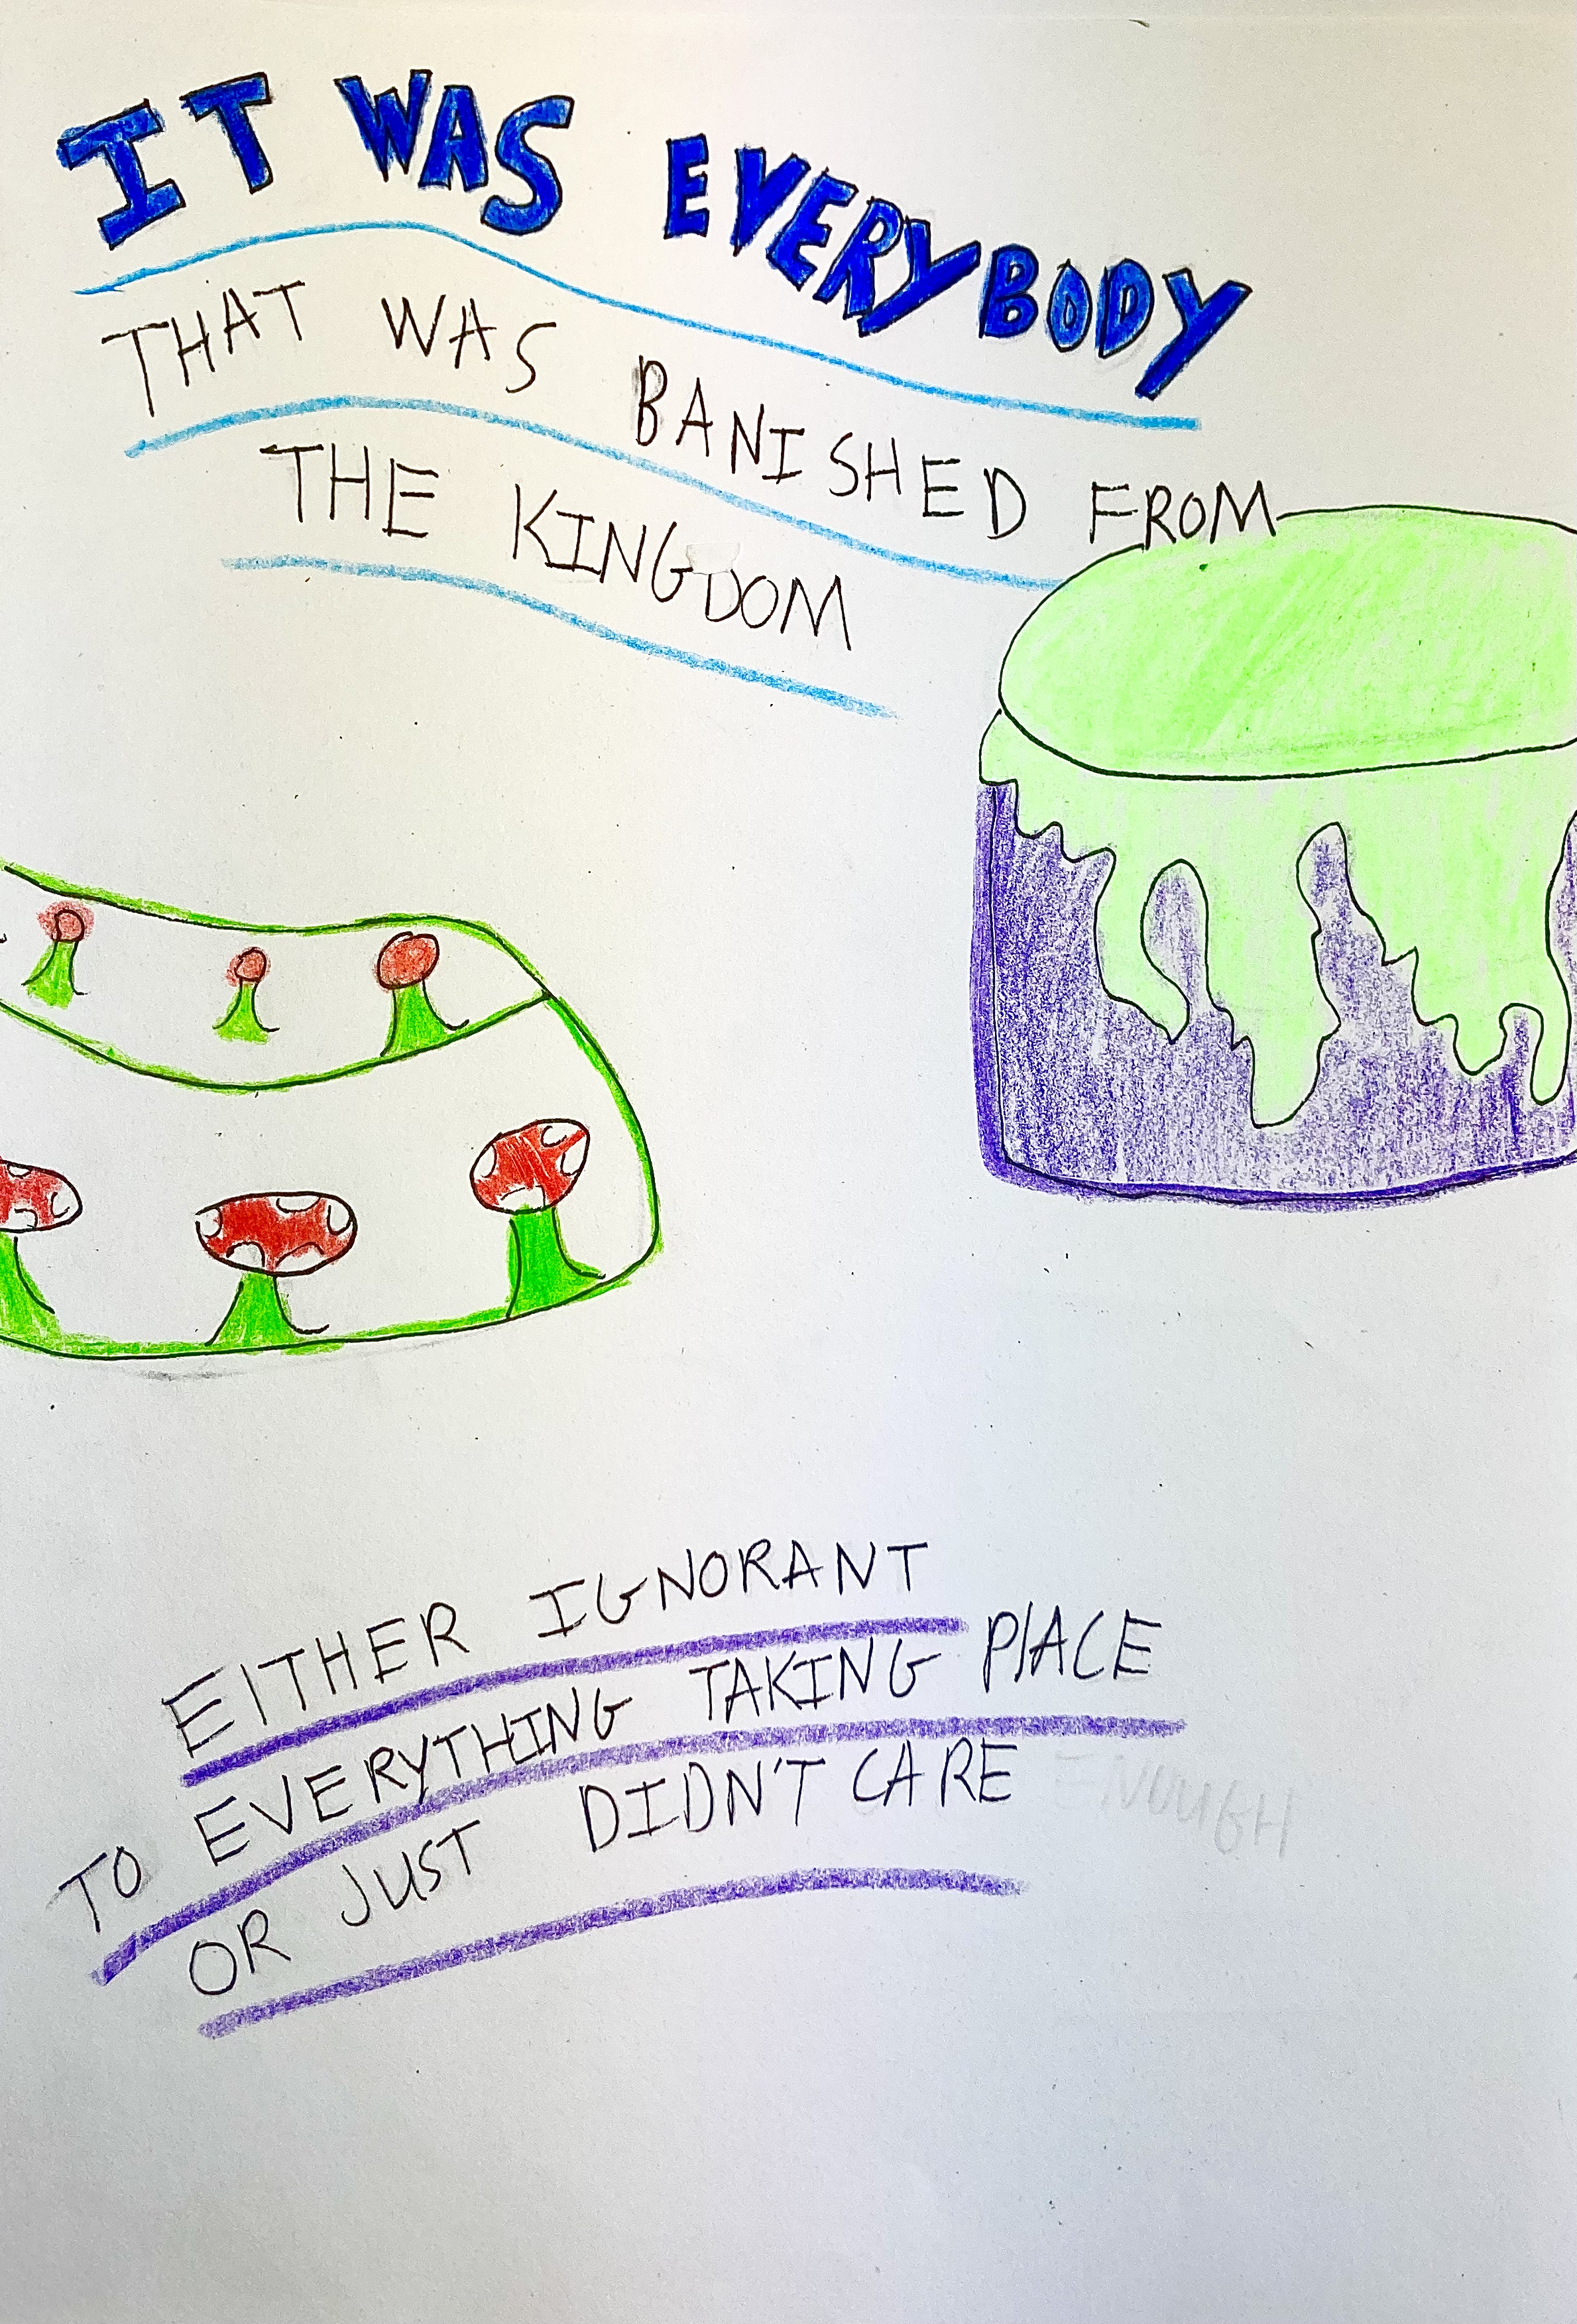 IT WAS EVERYBODY
THAT WAS BANISHED FROM
THE KINGDOM
EITHER IGNORANT
TO EVERYTHING TAKING PLACE
OR JUST DIDN'T CARE ENOUGH